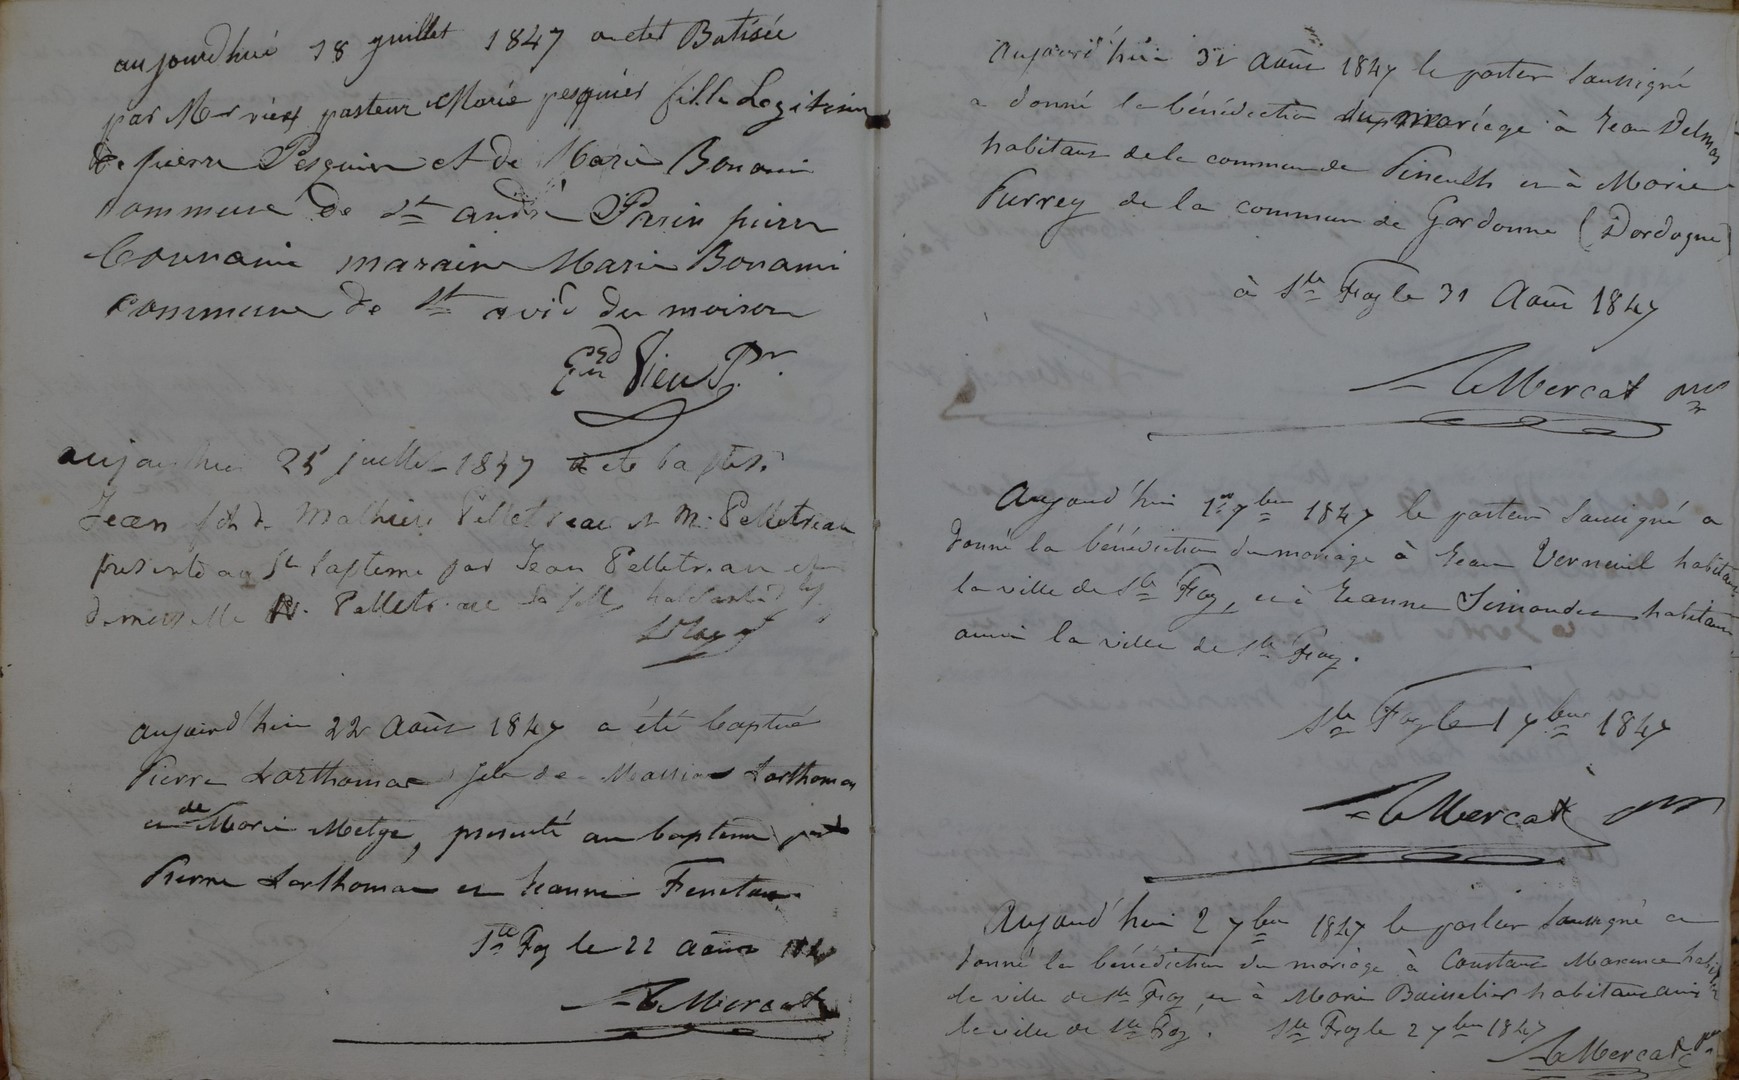 aujourdhui 18 juillet 1847 a etet Batisée
par Mr vieu pasteur Marie pesquier fille Legitime
de pierre Pesquier et de Marie Bonami
commune de St andré Parin pierre
maraine Marie Bonami
commune de St avid du moiron
Vieu Pr.
aujourdhui 25 juillet 1847 a ete baptisé
Jean fils de Mathieu Pelletreau et M. Pelletreau
presenté au St bapteme par Jean Pelletreau et
demoiselle N. Pelletreau sa fille
aujourd'hui 22 Août 1847 a été baptisé
Pierre Larthomas fils de Larthomas
et de Marie Metge, presenté au baptême par
Pierre Larthomas et Jeanne
Ste Foy le 22 Août 184
Le Mercat
Aujourd'hui 31 Août 1847 le pasteur soussigné
a donné la bénédiction du mariage à Jean Delmas
habitant de la commune de Pineuilh et à Marie
Furrey de la commune de Gardonne (Dordogne)
à Ste Foy le 31 Août 1847
Le Mercat
Aujourd'hui 1er 7bre 1847 le pasteur soussigné a
donné la bénédiction du mariage à Jean Verneuil habitant
la ville de Ste Foy, et à Jeanne habitant
aussi la ville de Ste Foy.
Ste Foy le 1 7bre 1847
Le Mercat
Aujourd'hui 2 7bre 1847 le pasteur soussigné a
donné la bénédiction du mariage à Constant
la ville de Ste Foy, et à Marie habitant aussi
la ville de Ste Foy. Ste Foy le 2 7bre 1847
Le Mercat